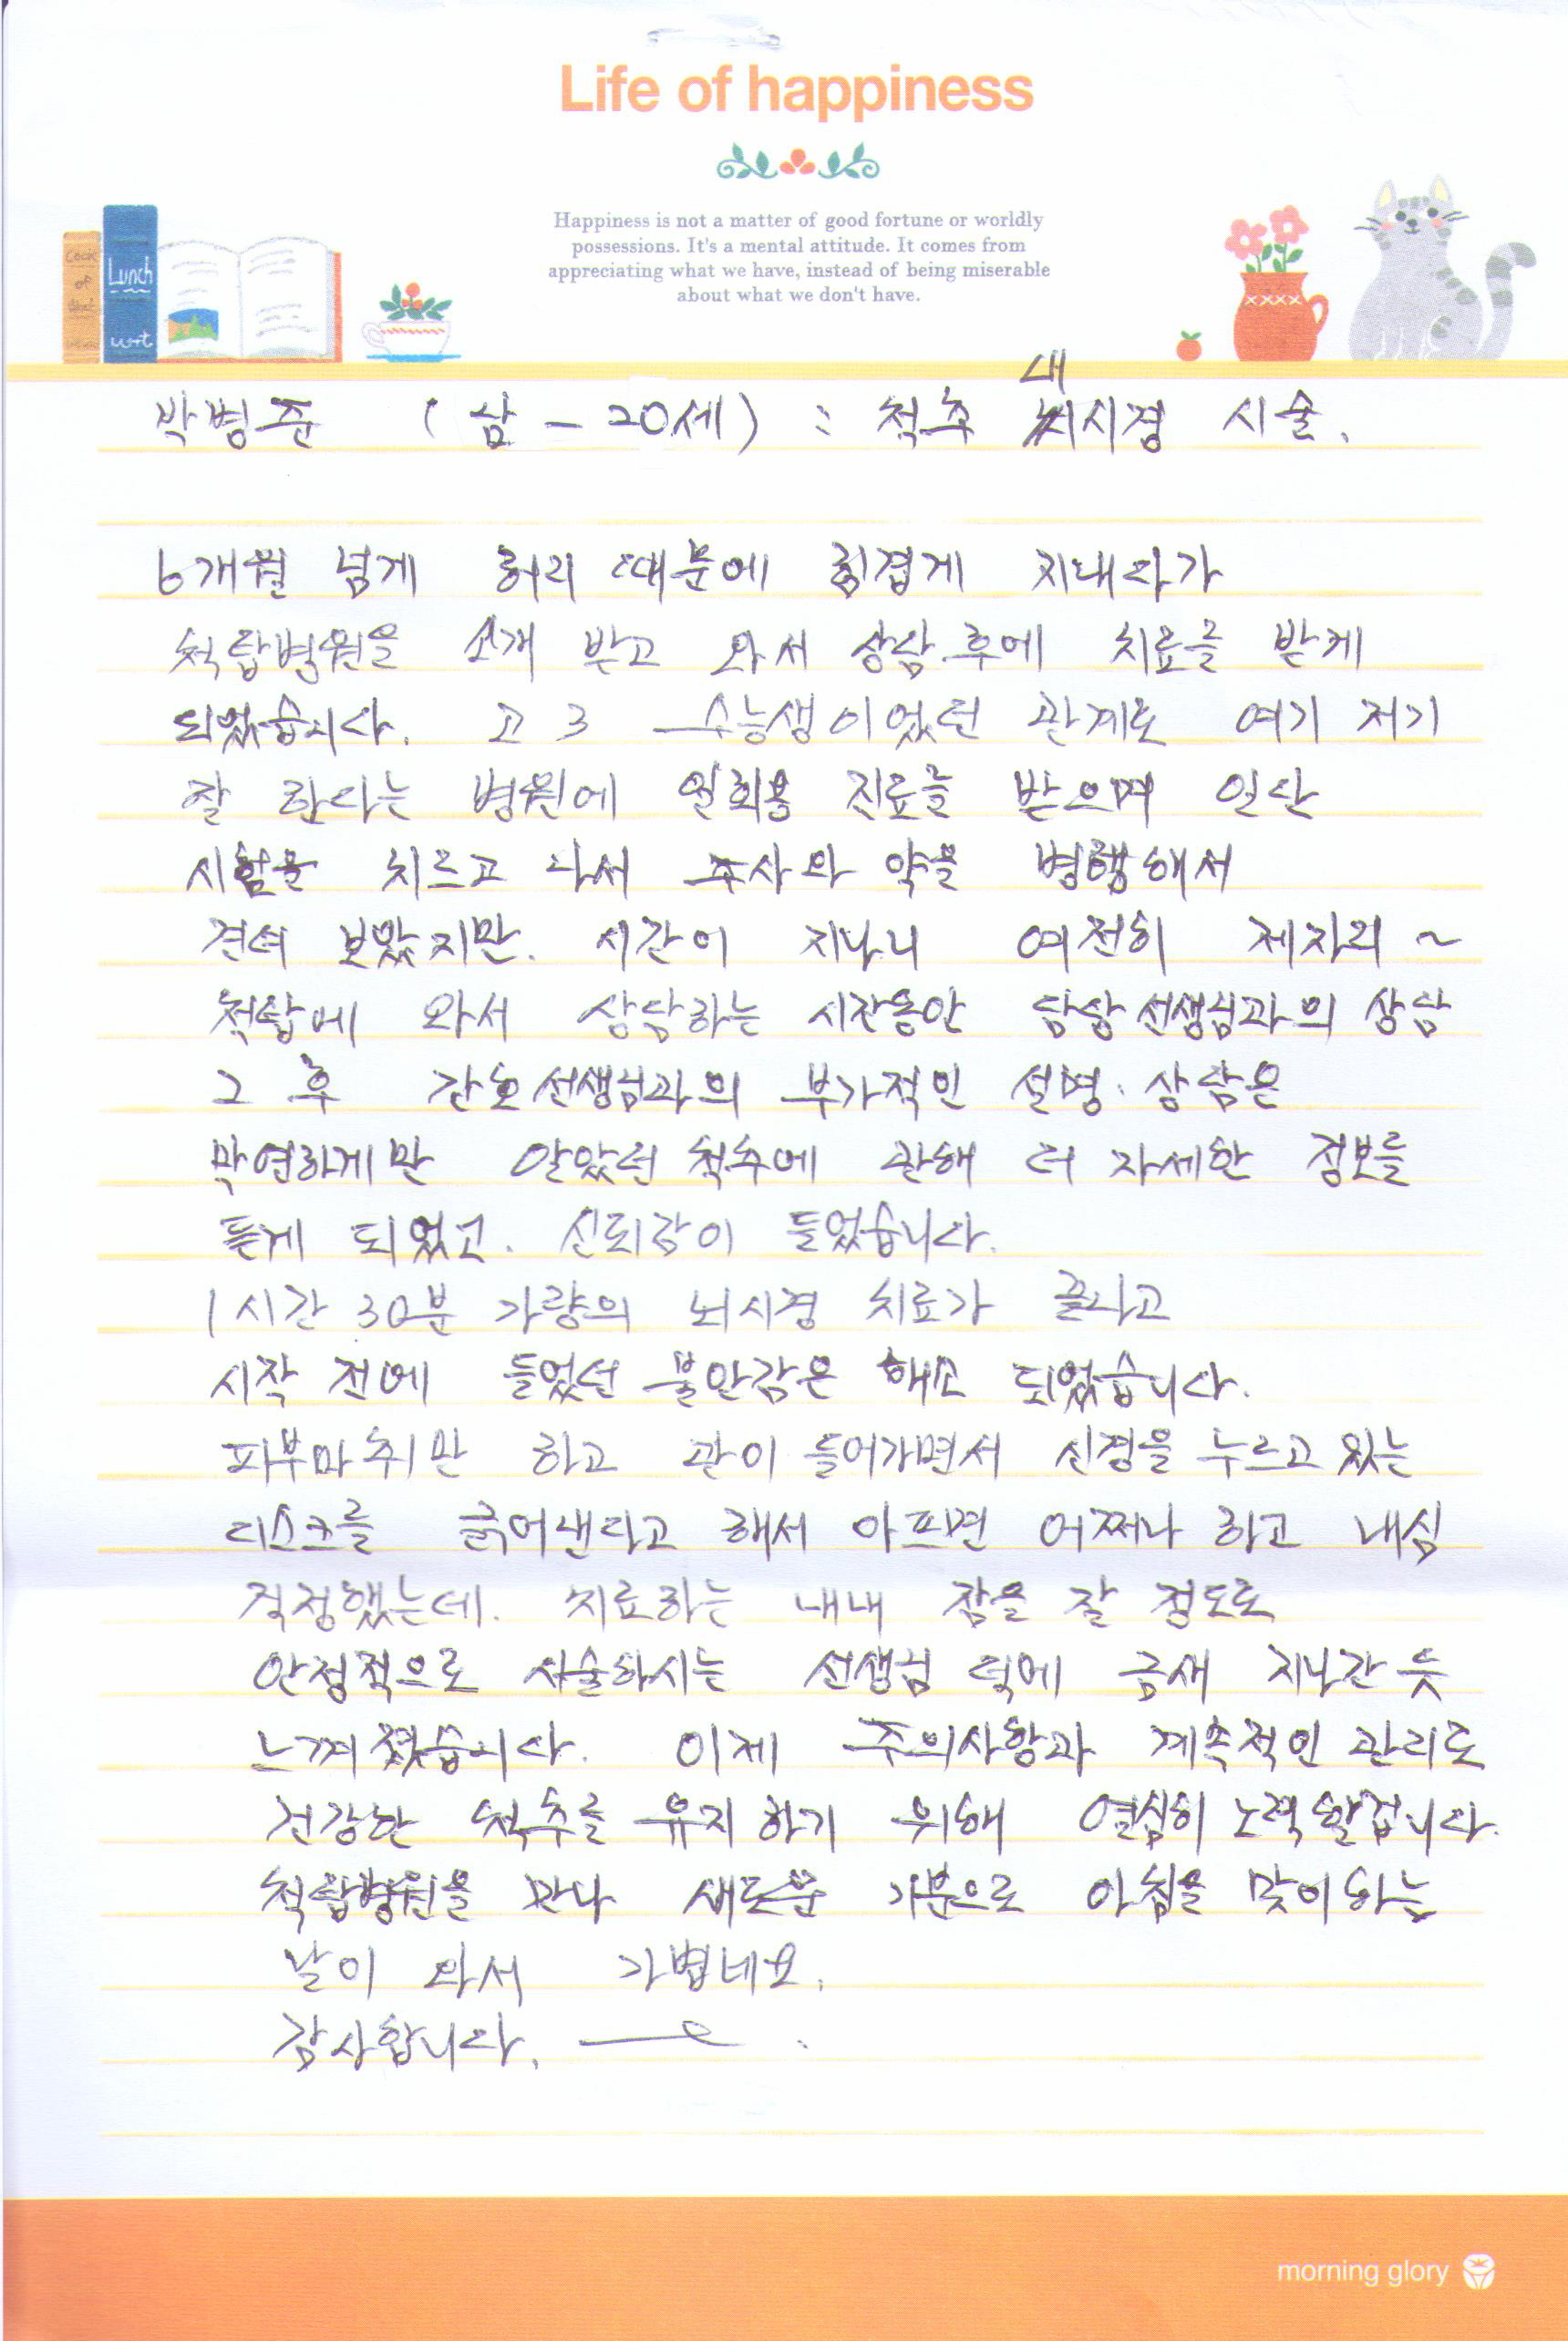 Life of happiness
Happiness is not a matter of good fortune or worldly
possessions. It's a mental attitude. It comes from
appreciating what we have, instead of being miserable
about what we don't have.
Lunch
내
박병준 (남 - 20세) : 척추 시경 시술.
6개월 넘게 허리 때문에 힘겹게 지내다가
척탑병원을 소개 받고 와서 상담 후에 치료를 받게
되었습니다. 고3 수능생이었던 관계로 여기 저기
잘 한다는 병원에 일회용 진료를 받으며 일단
시험을 치르고 나서 주사와 약을 병행해서
견뎌 보았지만. 시간이 지나니 여전히 제자리 ~
척탑에 와서 상담하는 시간동안 담당 선생님과의 상담
그 후 간호선생님과의 부가적인 설명. 상담은
막연하게만 알았던 척추에 관해 더 자세한 정보를
듣게 되었고. 신뢰감이 들었습니다.
1시간 30분 가량의 뇌시경 치료가 끝나고
시작 전에 들었던 불안감은 해소 되었습니다.
피부마취만 하고 관이 들어가면서 신경을 누르고 있는
디스크를 긁어낸다고 해서 아프면 어쩌나 하고 내심
걱정했는데. 치료하는 내내 잠을 잘 정도로
안정적으로 시술하시는 선생님 덕에 금새 지나간 듯
느껴졌습니다. 이제 주의사항과 계속적인 관리로
건강한 척추를 유지하기 위해 열심히 노력할겁니다.
척탑병원을 만나 새로운 기분으로 아침을 맞이하는
날이 와서 가볍네요.
감사합니다.
morning glory